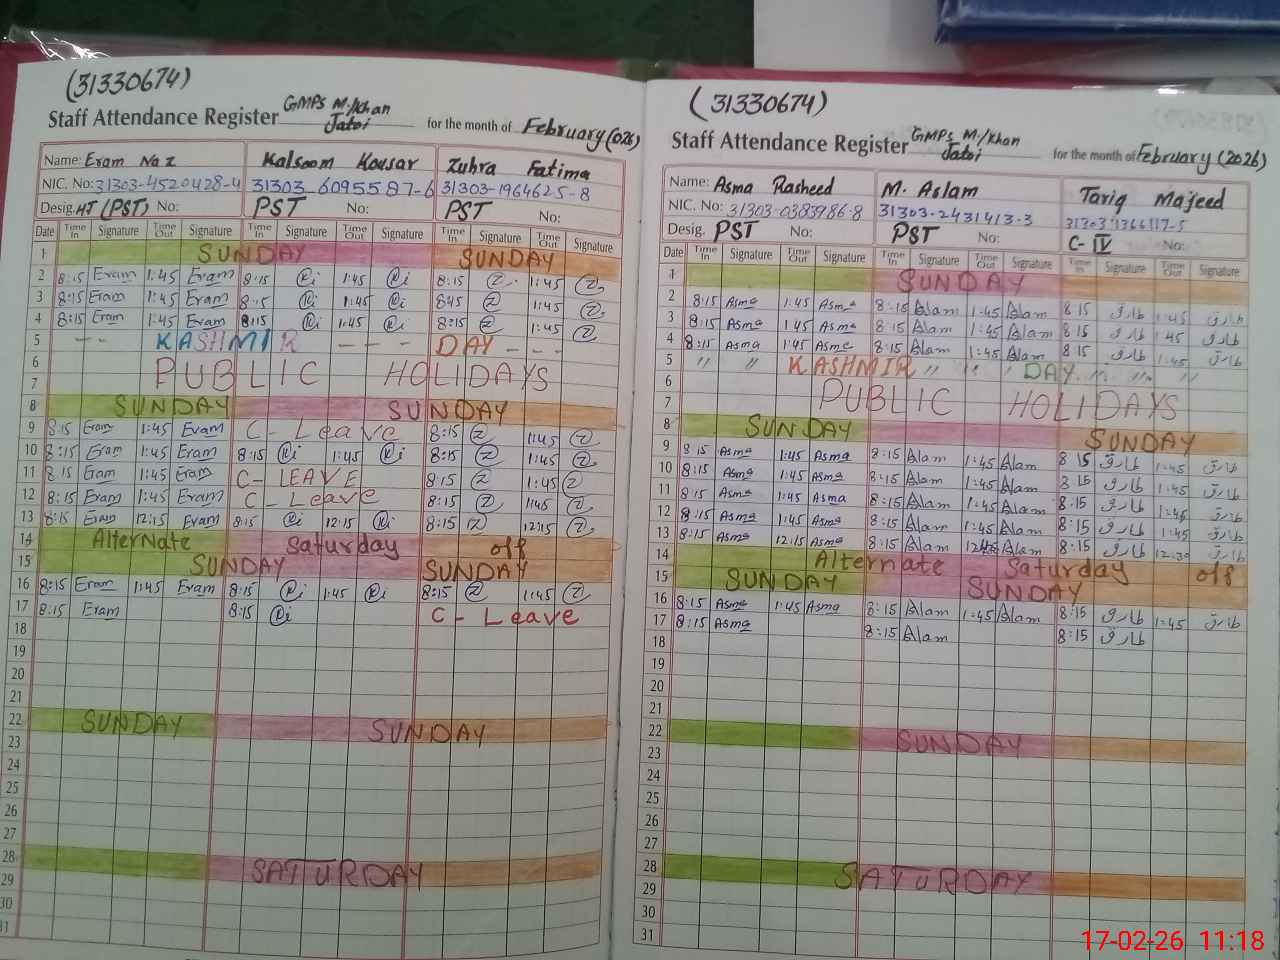 (31330674)
Staff Attendance Register GMPS M./Khan Jatoi for the month of February (026)
Name: Eram Naz Kalsoom Kousar Zuhra Fatima
NIC. No: 31303-4520428-4 31303-6095587-6 31303-1964625-8
Desig. HT (PST) No: PST No: PST No:
Date Time In Signature Time Out Signature Time In Signature Time Out Signature Time In Signature Time Out Signature
1 SUNDAY SUNDAY
2 8:15 Eram 1:45 Eram 8:15 1:45 8:15 Z 1:45 Z
3 8:15 Eram 1:45 Eram 8:15 1:45 8:45 Z 1:45 Z
4 8:15 Eram 1:45 Eram 8:15 1:45 8:15 Z 1:45 Z
5 -- KASHMIR - - - DAY - - -
6 PUBLIC HOLIDAYS
7
8 SUNDAY SUNDAY
9 8:15 Eram 1:45 Eram C - Leave 8:15 Z 1:45 Z
10 8:15 Eram 1:45 Eram 8:15 1:45 8:15 Z 1:45 Z
11 8:15 Eram 1:45 Eram C - LEAVE 8:15 Z 1:45 Z
12 8:15 Eram 1:45 Eram C - Leave 8:15 Z 1:45 Z
13 8:15 Eram 12:15 Eram 8:15 12:15 8:15 Z 12:15 Z
14 Alternate Saturday off
15 SUNDAY SUNDAY
16 8:15 Eram 1:45 Eram 8:15 1:45 8:15 Z 1:45 Z
17 8:15 Eram 8:15 C - Leave
18
19
20
21
22 SUNDAY SUNDAY
23
24
25
26
27
28 SATURDAY
29
30
31
(31330674)
Staff Attendance Register GMPS M./Khan Jatoi for the month of February (2026)
Name: Asma Rasheed M. Aslam Tariq Majeed
NIC. No: 31303-0383986-8 31303-2431413-3 31303-1366117-5
Desig. PST No: PST No: C-IV No:
Date Time In Signature Time Out Signature Time In Signature Time Out Signature Time In Signature Time Out Signature
1 SUNDAY
2 8:15 Asma 1:45 Asma 8:15 Aslam 1:45 Aslam 8:15 طارق 1:45 طارق
3 8:15 Asma 1:45 Asma 8:15 Aslam 1:45 Aslam 8:15 طارق 1:45 طارق
4 8:15 Asma 1:45 Asma 8:15 Aslam 1:45 Aslam 8:15 طارق 1:45 طارق
5 " " KASHMIR " " " DAY " " "
6 PUBLIC HOLIDAYS
7
8 SUNDAY SUNDAY
9 8:15 Asma 1:45 Asma 8:15 Aslam 1:45 Aslam 8:15 طارق 1:45 طارق
10 8:15 Asma 1:45 Asma 8:15 Aslam 1:45 Aslam 8:15 طارق 1:45 طارق
11 8:15 Asma 1:45 Asma 8:15 Aslam 1:45 Aslam 8:15 طارق 1:45 طارق
12 8:15 Asma 1:45 Asma 8:15 Aslam 1:45 Aslam 8:15 طارق 1:45 طارق
13 8:15 Asma 12:15 Asma 8:15 Aslam Aslam 8:15 طارق 12:30 طارق
14 Alternate Saturday off
15 SUNDAY SUNDAY
16 8:15 Asma 1:45 Asma 8:15 Aslam 1:45 Aslam 8:15 طارق 1:45 طارق
17 8:15 Asma 8:15 Aslam 8:15 طارق
18
19
20
21
22 SUNDAY
23
24
25
26
27
28 SATURDAY
29
30
31
17-02-26 11:18